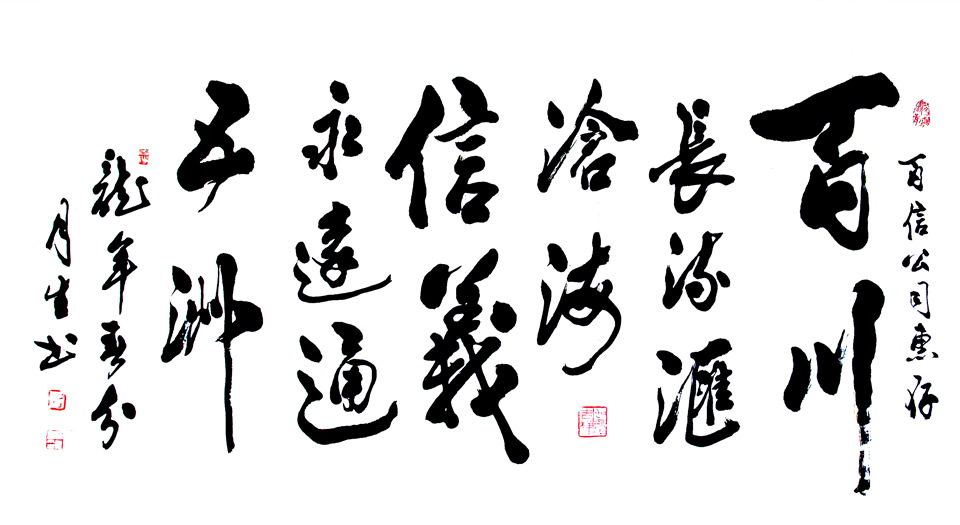 百信公司惠存
百川
長流滙
滄海
信義
永遠通
五洲
龍年春分
月生书